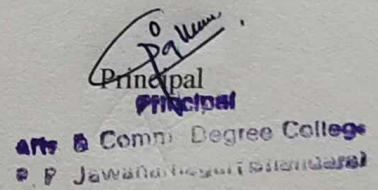 Principal
Principal
Arts & Comm. Degree College
P. P. Jawaharnagar